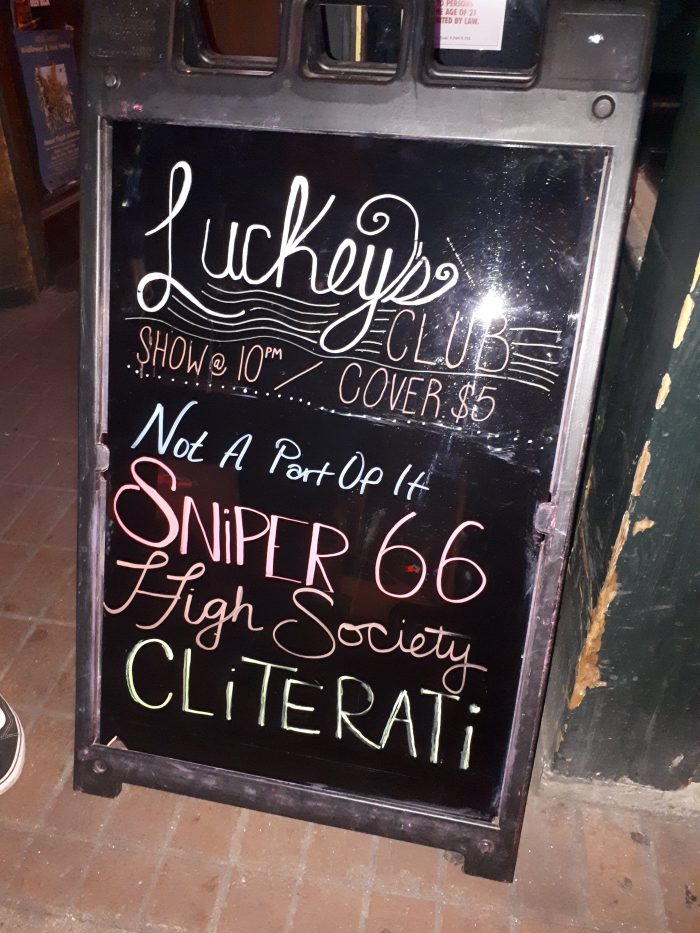 TO PERSONS
THE AGE OF 21
BY LAW.
Luckey's
CLUB
SHOW @ 10PM / COVER $5
Not A Part Of It
SNiPER 66
High Society
CLiTERATi